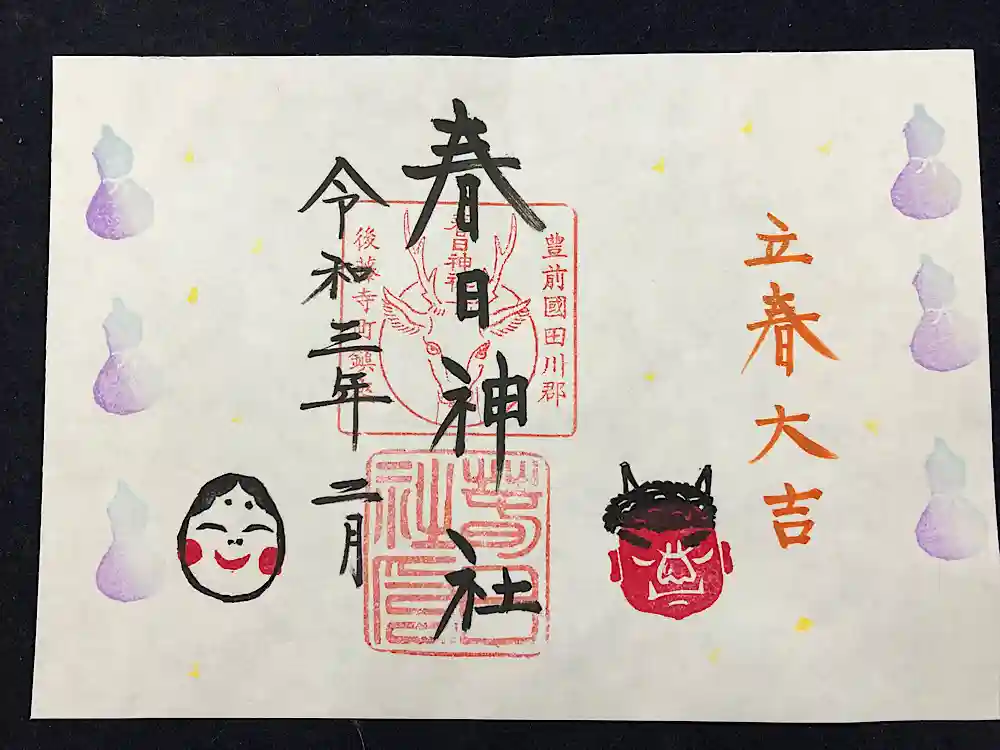 立春大吉
豊前國田川郡
春日神社
春日神社
後藤寺町鎮座
令和三年二月